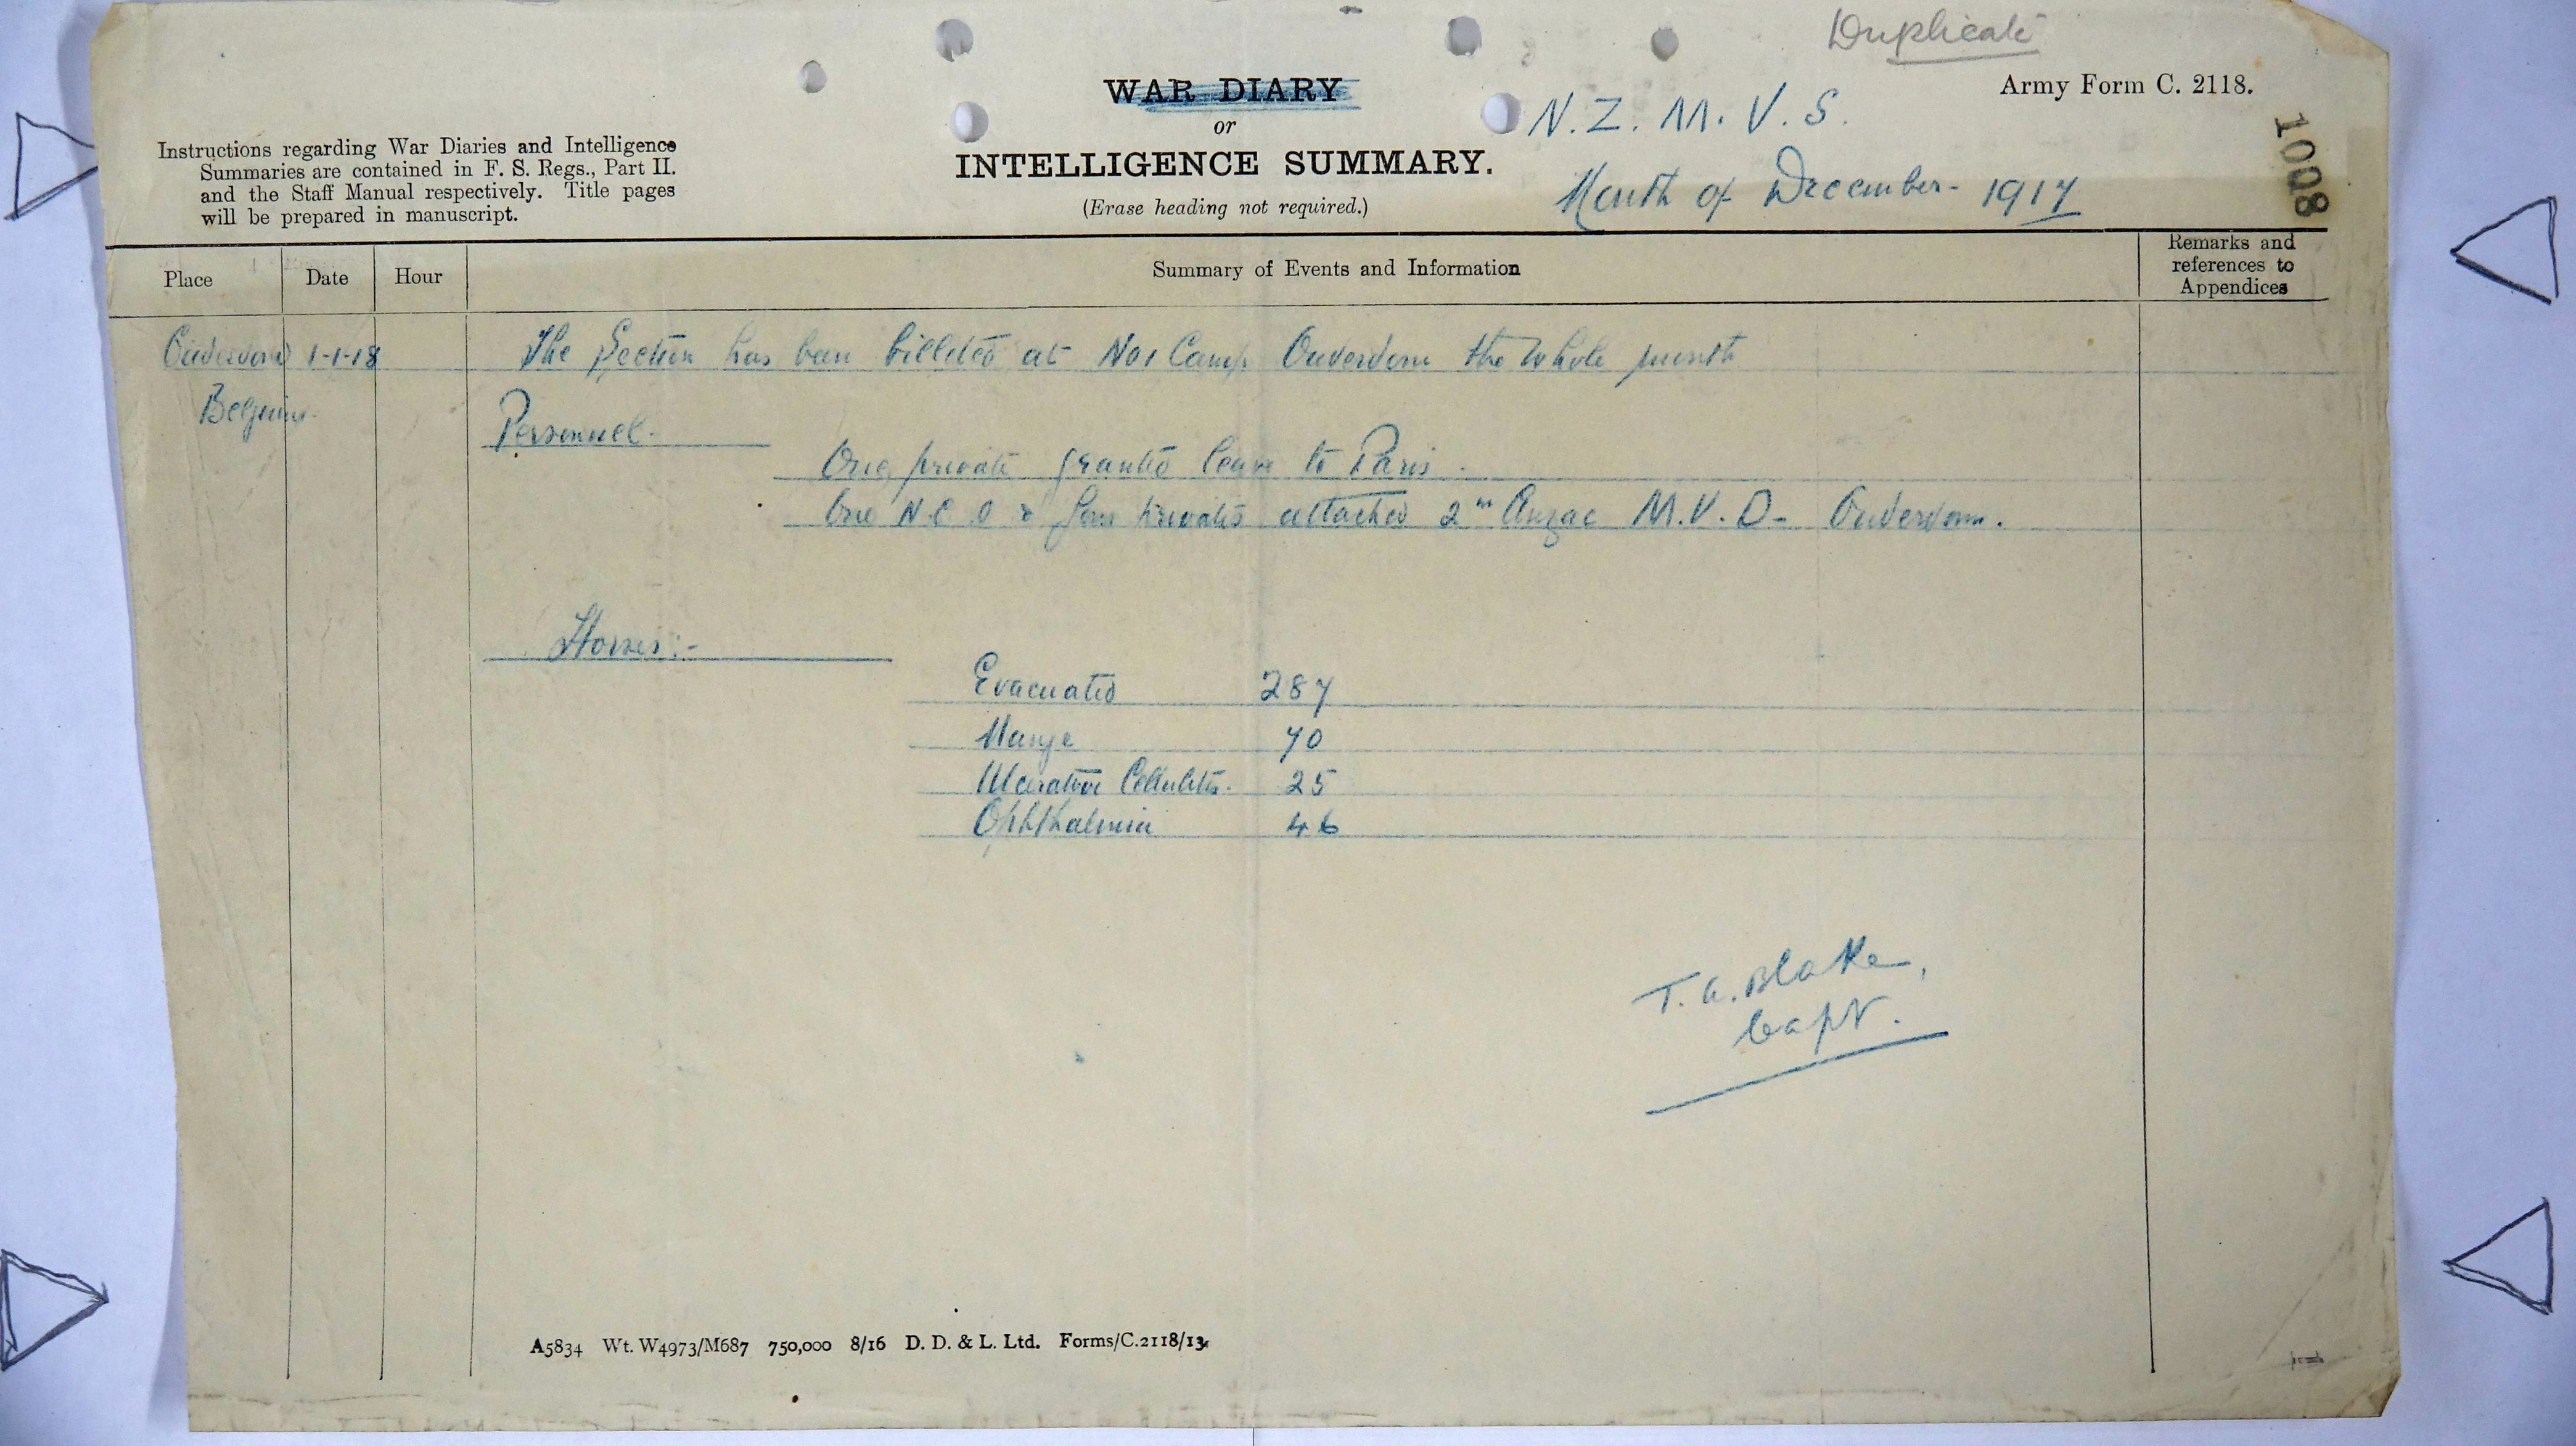 Duplicate
WAR DIARY
or
INTELLIGENCE SUMMARY.
(Erase heading not required.)
Army Form C. 2118.
N. Z. M. V. S.
Month of December - 1917
1008
Instructions regarding War Diaries and Intelligence
Summaries are contained in F. S. Regs., Part II.
and the Staff Manual respectively. Title pages
will be prepared in manuscript.
Place Date Hour Summary of Events and Information Remarks and references to Appendices
Ouderdom 1-1-18 The Section has been billeted at No 1 Camp Ouderdom the whole month
Belgium.
Personnel.
One private granted leave to Paris.
One N.C.O & four privates attached 2nd Anzac M.V.D- Ouderdom.
Horses:-
Evacuated 287
Mange 70
Ulcerative Cellulitis. 25
Ophthalmia 46
T. A. Blake,
Capt.
A5834 Wt. W4973/M687 750,000 8/16 D. D. & L. Ltd. Forms/C.2118/13.